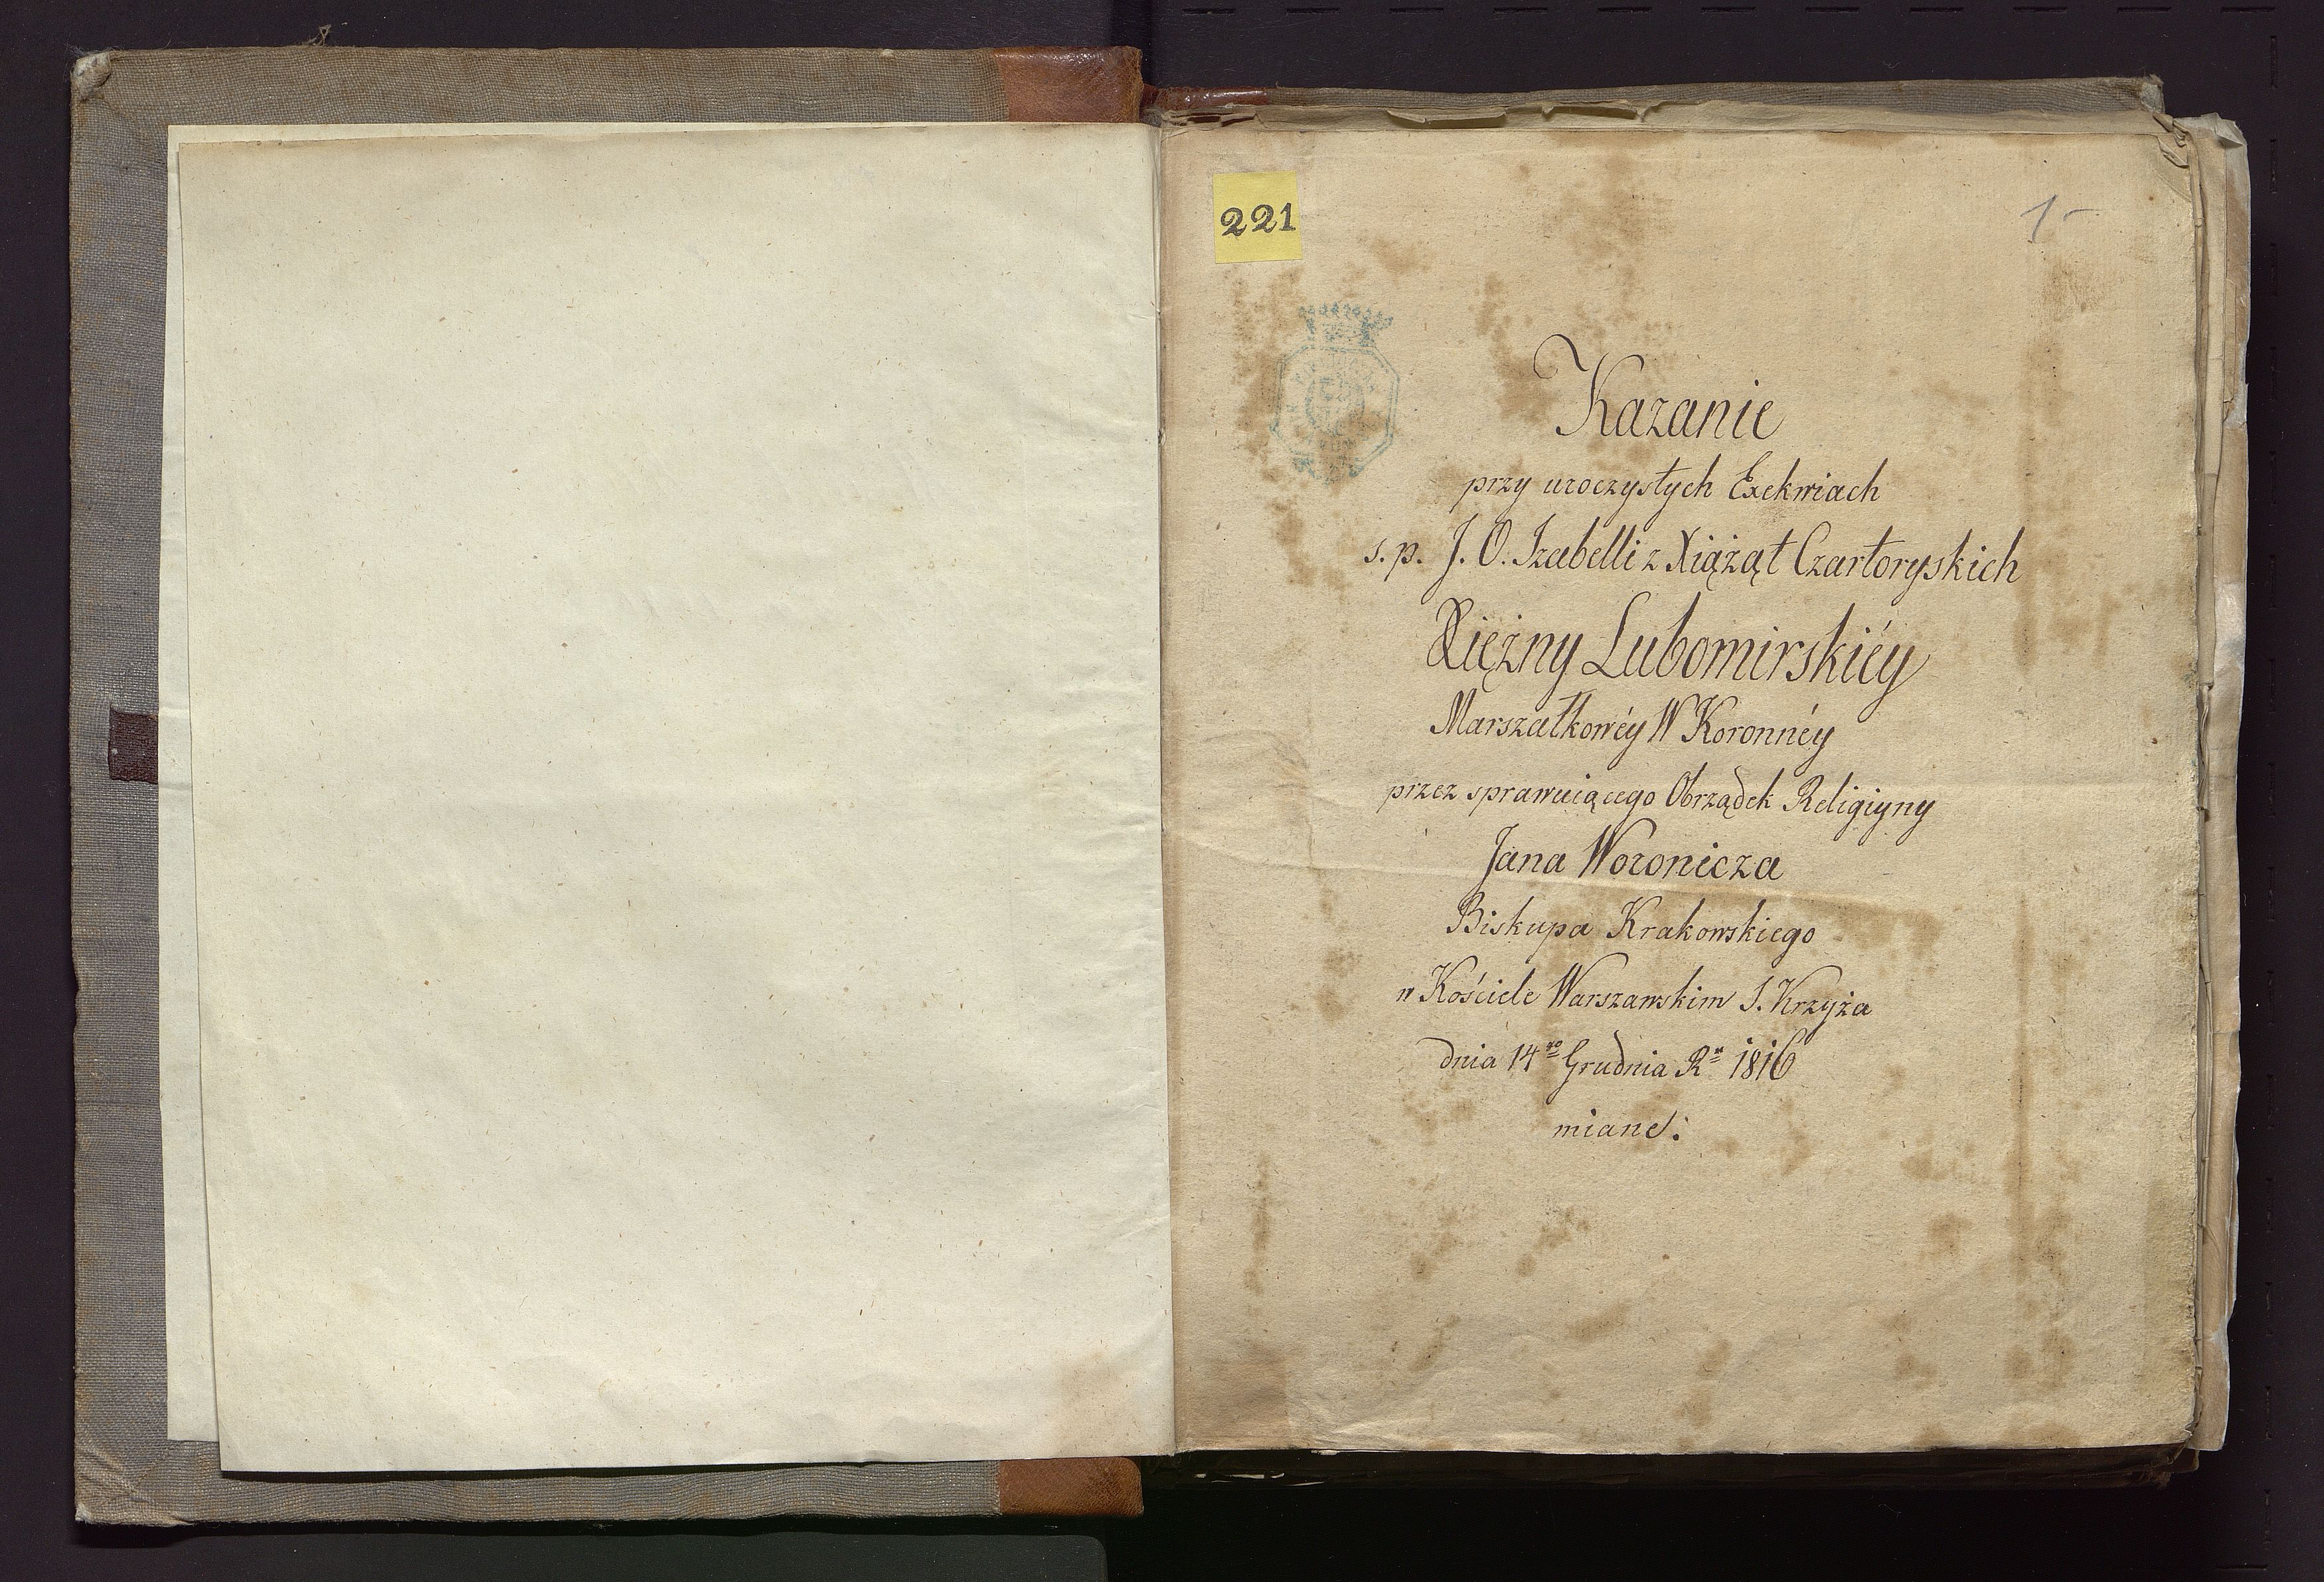 221
1
Kazanie
przy uroczystych Exekwiach
s. p. J. O. Izabelli z Xiążąt Czartoryskich
Xiężny Lubomirskiéy
Marszałkowéy W Koronnéy
przez sprawuiącego Obrządek Religiyny
Jana Woronicza
Biskupa Krakowskiego
w Kościele Warszawskim S. Krzyża
dnia 14go Grudnia Ru 1816
miane: